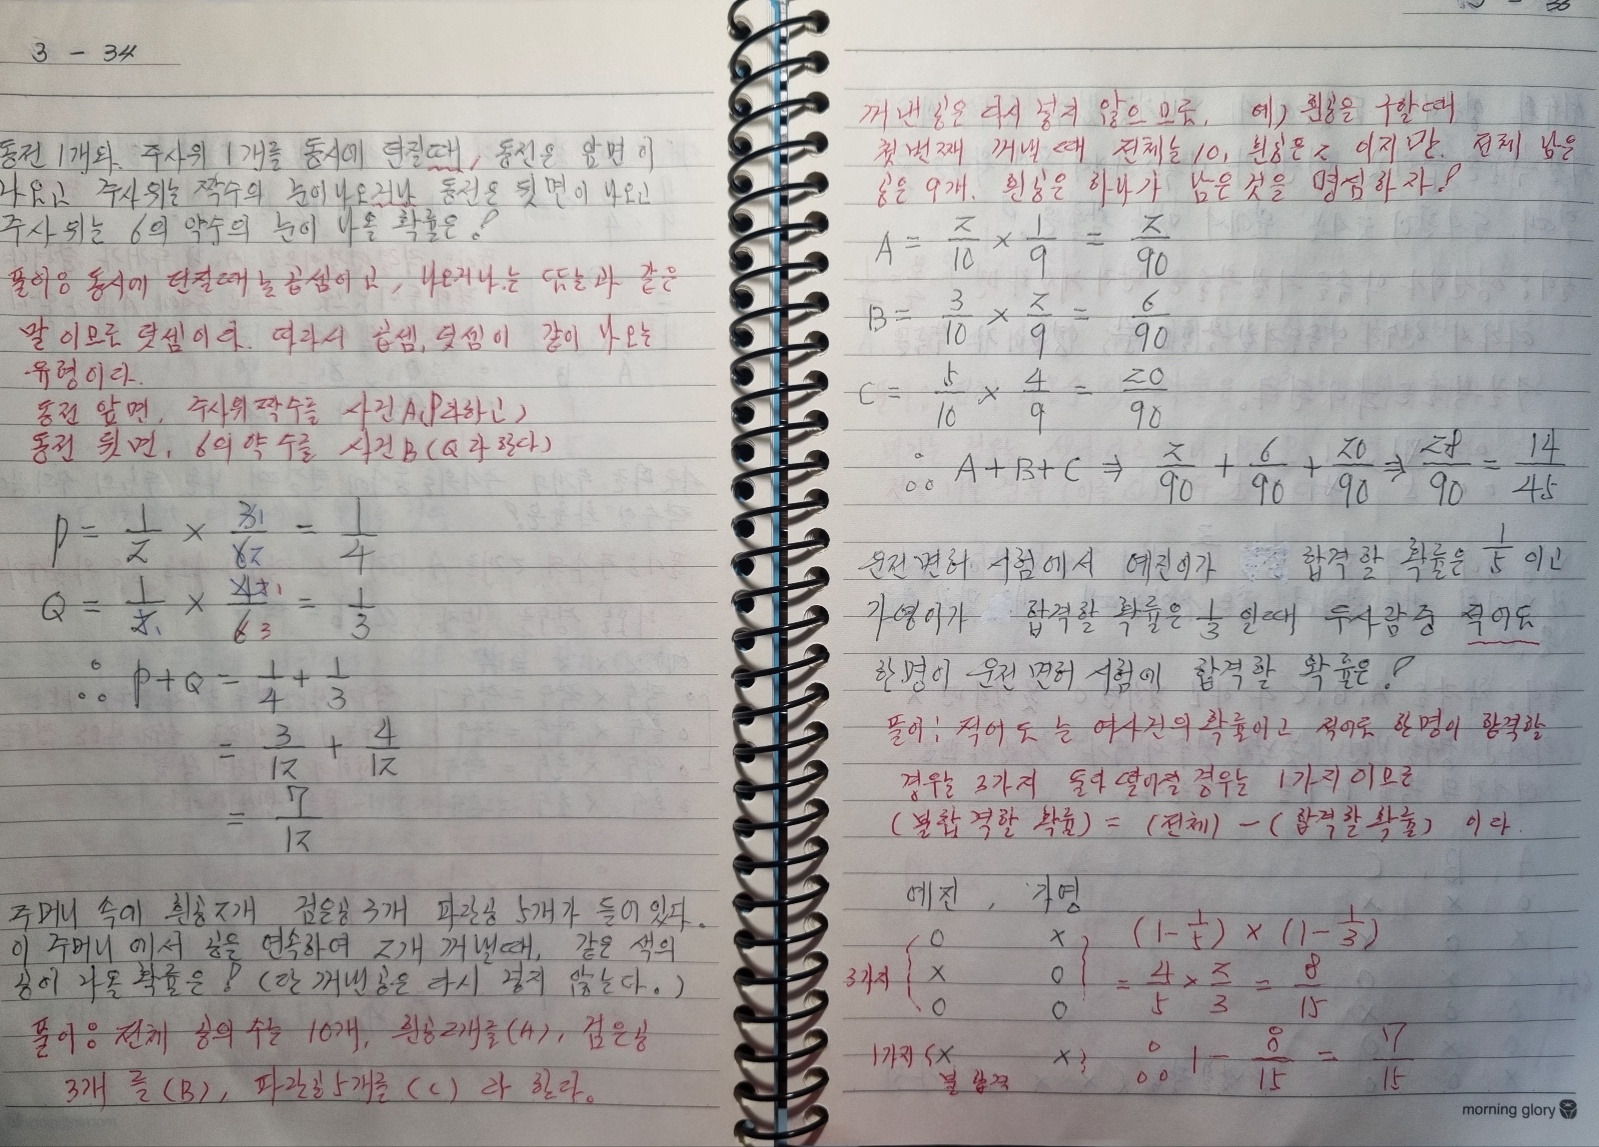 3 - 34
동전 1개와. 주사위 1개를 동시에 던질때, 동전은 앞면이
나오고 주사위는 짝수의 눈이나오거나 동전은 뒷면이 나오고
주사위는 6의 약수의 눈이 나올 확률은?
풀이: 동시에 던질때는 곱셈이고, 나오거나는 또는과 같은
말이므로 덧셈이다. 따라서 곱셈, 덧셈이 같이 나오는
유형이다.
동전 앞면, 주사위짝수를 사건A(P라하고)
동전 뒷면, 6의약수를 사건B(Q라 한다)
P = 1/2 × 3/6 = 1/4
Q = 1/2 × 4/6 = 1/3
∴ P+Q = 1/4 + 1/3
= 3/12 + 4/12
= 7/12
주머니 속에 흰공2개 검은공 3개 파란공 5개가 들어있다.
이 주머니에서 공을 연속하여 2개 꺼낼때, 같은 색의
공이 나올 확률은? (단 꺼낸공은 다시 넣지 않는다.)
풀이: 전체 공의 수는 10개, 흰공2개를(A), 검은공
3개를(B), 파란공5개를(C)라 한다.
꺼낸 공은 다시 넣지 않으므로, 예) 흰공을 구할때
첫번째 꺼낼때 전체는 10, 흰공은 2 이지만. 전체 남은
공은 9개. 흰공은 하나가 남은것을 명심하자!
A = 2/10 × 1/9 = 2/90
B = 3/10 × 2/9 = 6/90
C = 5/10 × 4/9 = 20/90
∴ A+B+C ⇒ 2/90 + 6/90 + 20/90 ⇒ 28/90 = 14/45
운전면허 시험에서 예진이가 합격할 확률은 1/5 이고
가영이가 합격할 확률은 1/3 일때 두사람중 적어도
한명이 운전면허시험에 합격할 확률은?
풀이: 적어도는 여사건의확률이고 적어도 한명이 합격할
경우는 3가지 둘다 떨어질경우는 1가지이므로
(불합격할 확률) = (전체) - (합격할확률) 이다.
예진, 가영
O × (1-1/5) × (1-1/3)
3가지 × O = 4/5 × 2/3 = 8/15
O O
1가지 × × ∴ 1 - 8/15 = 7/15
불합격
morning glory